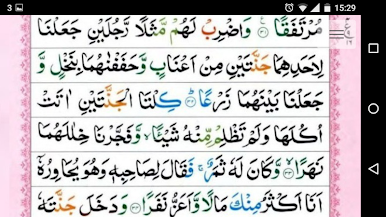 3 15:29
مُرْتَفَقًا ۝٣١ وَاضْرِبْ لَهُمْ مَّثَلًا رَّجُلَيْنِ جَعَلْنَا
لِاَحَدِهِمَا جَنَّتَيْنِ مِنْ اَعْنَابٍ وَّحَفَفْنٰهُمَا بِنَخْلٍ وَّ
جَعَلْنَا بَيْنَهُمَا زَرْعًا ۝٣٢ كِلْتَا الْجَنَّتَيْنِ اٰتَتْ
اُكُلَهَا وَلَمْ تَظْلِمْ مِّنْهُ شَيْئًا وَّفَجَّرْنَا خِلٰلَهُمَا
نَهَرًا ۝٣٣ وَّكَانَ لَهٗ ثَمَرٌ فَقَالَ لِصَاحِبِهٖ وَهُوَ يُحَاوِرُهٗ
اَنَا اَكْثَرُ مِنْكَ مَالًا وَّاَعَزُّ نَفَرًا ۝٣٤ وَدَخَلَ جَنَّتَهٗ